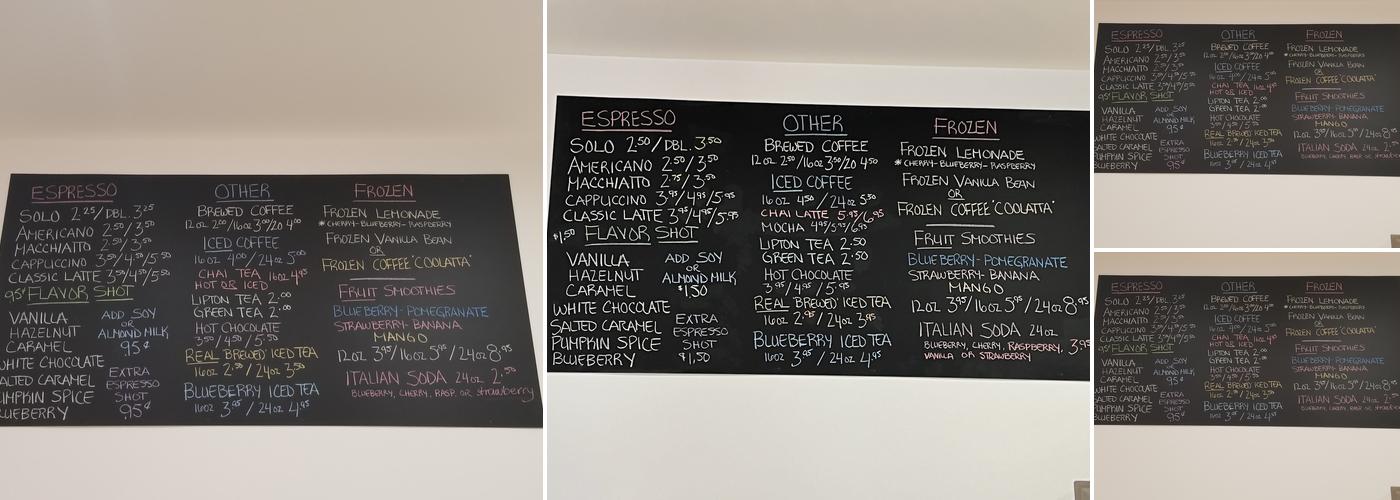 ESPRESSO
SOLO 2.25/DBL. 3.25
AMERICANO 2.50/3.50
MACCHIATO 2.50/3.50
CAPPUCCINO 3.50/4.50/5.50
CLASSIC LATTE 3.50/4.50/5.50
95¢ FLAVOR SHOT
VANILLA
HAZELNUT
CARAMEL
WHITE CHOCOLATE
SALTED CARAMEL
PUMPKIN SPICE
BLUEBERRY
ADD SOY
OR
ALMOND MILK
95¢
EXTRA
ESPRESSO
SHOT
95¢
OTHER
BREWED COFFEE
12oz 2.00/16oz 3.00/20 4.00
ICED COFFEE
16oz 4.00/24oz 5.00
CHAI TEA 16oz 4.95
HOT OR ICED
LIPTON TEA 2.00
GREEN TEA 2.00
HOT CHOCOLATE
3.50/4.50/5.50
REAL BREWED ICED TEA
16oz 2.50/24oz 3.50
BLUEBERRY ICED TEA
16oz 3.95/24oz 4.95
FROZEN
FROZEN LEMONADE
*CHERRY-BLUEBERRY-RASPBERRY
FROZEN VANILLA BEAN
OR
FROZEN COFFEE "COOLATTA"
FRUIT SMOOTHIES
BLUEBERRY-POMEGRANATE
STRAWBERRY-BANANA
MANGO
12oz 3.95/16oz 5.95/24oz 8.95
ITALIAN SODA 24oz 2.50
BLUEBERRY, CHERRY, RASP. OR strawberry
ESPRESSO
SOLO 2.50/DBL. 3.50
AMERICANO 2.50/3.50
MACCHIATTO 2.75/3.50
CAPPUCCINO 3.95/4.95/5.95
CLASSIC LATTE 3.95/4.95/5.95
$1.50 FLAVOR SHOT
VANILLA
HAZELNUT
CARAMEL
WHITE CHOCOLATE
SALTED CARAMEL
PUMPKIN SPICE
BLUEBERRY
ADD SOY
OR
ALMOND MILK
$1.50
EXTRA
ESPRESSO
SHOT
$1.50
OTHER
BREWED COFFEE
12oz 2.50/16oz 3.50/20 4.50
ICED COFFEE
16oz 4.50/24oz 5.50
CHAI LATTE 5.95/6.95
MOCHA 4.95/5.95/6.95
LIPTON TEA 2.50
GREEN TEA 2.50
HOT CHOCOLATE
3.95/4.95/5.95
REAL BREWED ICED TEA
16oz 2.95/24oz 3.95
BLUEBERRY ICED TEA
16oz 3.95/24oz 4.95
FROZEN
FROZEN LEMONADE
*CHERRY-BLUEBERRY-RASPBERRY
FROZEN VANILLA BEAN
OR
FROZEN COFFEE "COOLATTA"
FRUIT SMOOTHIES
BLUEBERRY-POMEGRANATE
STRAWBERRY-BANANA
MANGO
12oz 3.95/16oz 5.95/24oz 8.95
ITALIAN SODA 24oz
BLUEBERRY, CHERRY, RASPBERRY, 3.95
VANILLA OR STRAWBERRY